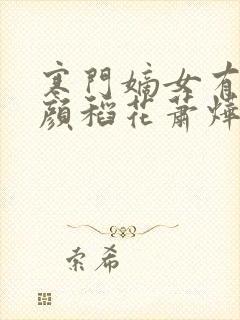 寒門嫡女有
顏稻花蕭燁
索希